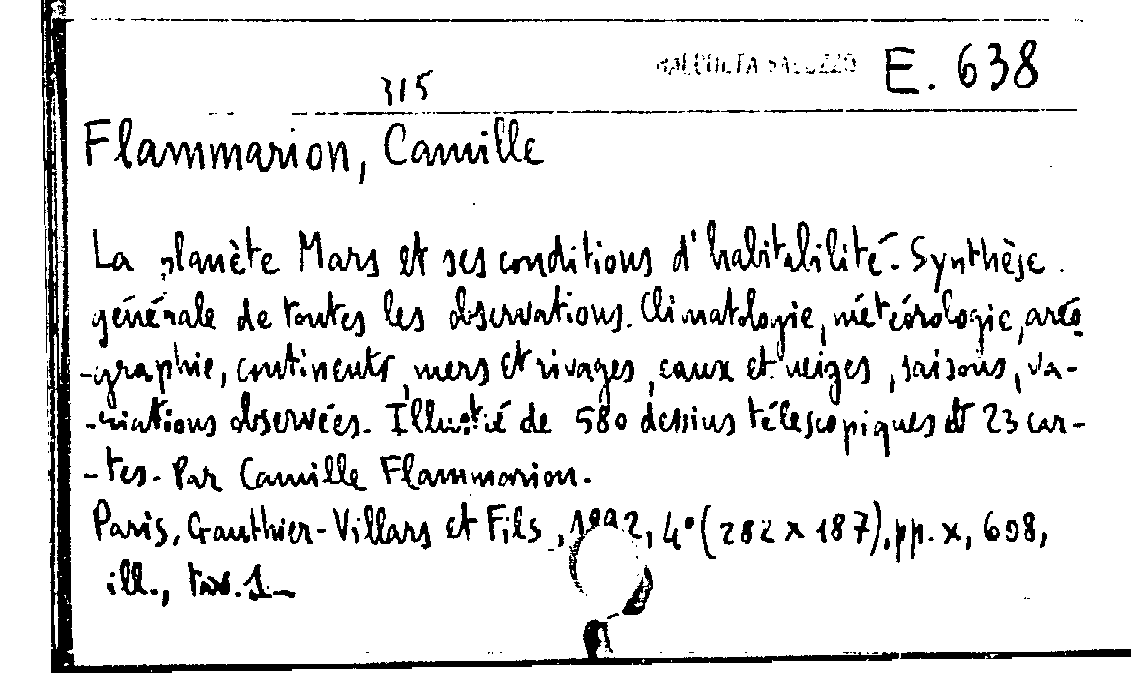 RACCOLTA SALUZZO E. 638
315
Flammarion, Camille
La planète Mars et ses conditions d'habitabilité. Synthèse
générale de toutes les observations. Climatologie, météorologie, aréo
-graphie, continents, mers et rivages, eaux et neiges, saisons, va-
-riations observées. Illustré de 580 dessins télescopiques et 23 car-
-tes. Par Camille Flammarion.
Paris, Gauthier-Villars et Fils, 1892, 4° (282 x 187), pp. x, 608,
ill., tav. 1_